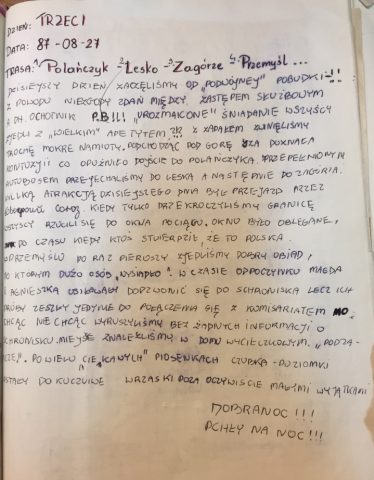 DZIEŃ: TRZECI
DATA: 87-08-27
TRASA: 1. Polańczyk - 2. Lesko - 3. Zagórze - 4. Przemyśl ...
DZISIEJSZY DZIEŃ ZACZĘLIŚMY OD "PODWÓJNEJ" POBUDKI-!!!
Z POWODU NIEZGODY ZDAŃ MIĘDZY ZASTĘPEM SŁUŻBOWYM
A DH. OCHOTNIK P.B!!! "UROZMAICONE" ŚNIADANIE WSZYSCY
ZJEDLI Z "WIELKIM" APETYTEM ?!? Z ZAPAŁEM ZWINĘLIŚMY
TROCHĘ MOKRE NAMIOTY. PODCHODZĄC POD GÓRĘ IZA DOZNAŁA
KONTUZJI CO OPÓŹNIŁO DOJŚCIE DO POLAŃCZYKA. PRZEPEŁNIONYM
AUTOBUSEM PRZEJECHALIŚMY DO LESKA A NASTĘPNIE DO ZAGÓRZA.
WIELKĄ ATRAKCJĄ DZISIEJSZEGO DNIA BYŁ PRZEJAZD PRZEZ
KIEDY TYLKO PRZEKROCZYLIŚMY GRANICĘ
WSZYSCY RZUCILI SIĘ DO OKNA POCIĄGU. OKNO BYŁO OBLEGANE,
DO CZASU KIEDY KTOŚ STWIERDZIŁ ŻE TO POLSKA.
W PRZEMYŚLU PO RAZ PIERWSZY ZJEDLIŚMY DOBRY OBIAD,
PO KTÓRYM DUŻO OSÓB "WYSIADŁO". W CZASIE ODPOCZYNKU MAGDA
I AGNIESZKA USIŁOWAŁY DODZWONIĆ SIĘ DO SCHRONISKA LECZ ICH
PRÓBY ZESZŁY JEDYNIE DO POŁĄCZENIA SIĘ Z KOMISARIATEM MO.
CHCĄC NIE CHCĄC WYRUSZYLIŚMY BEZ ŻADNYCH INFORMACJI O
SCHRONISKU. MIEJSCE ZNALEŹLIŚMY W DOMU WYCIECZKOWYM "PODZA-
MCZE". PO WIELU CIEKAWYCH PIOSENKACH CZUBKA-POZIOMKI
WRZASKI POZA OCZYWIŚCIE MAŁYMI WYJĄTKAMI
DOBRANOC !!!
PCHŁY NA NOC !!!